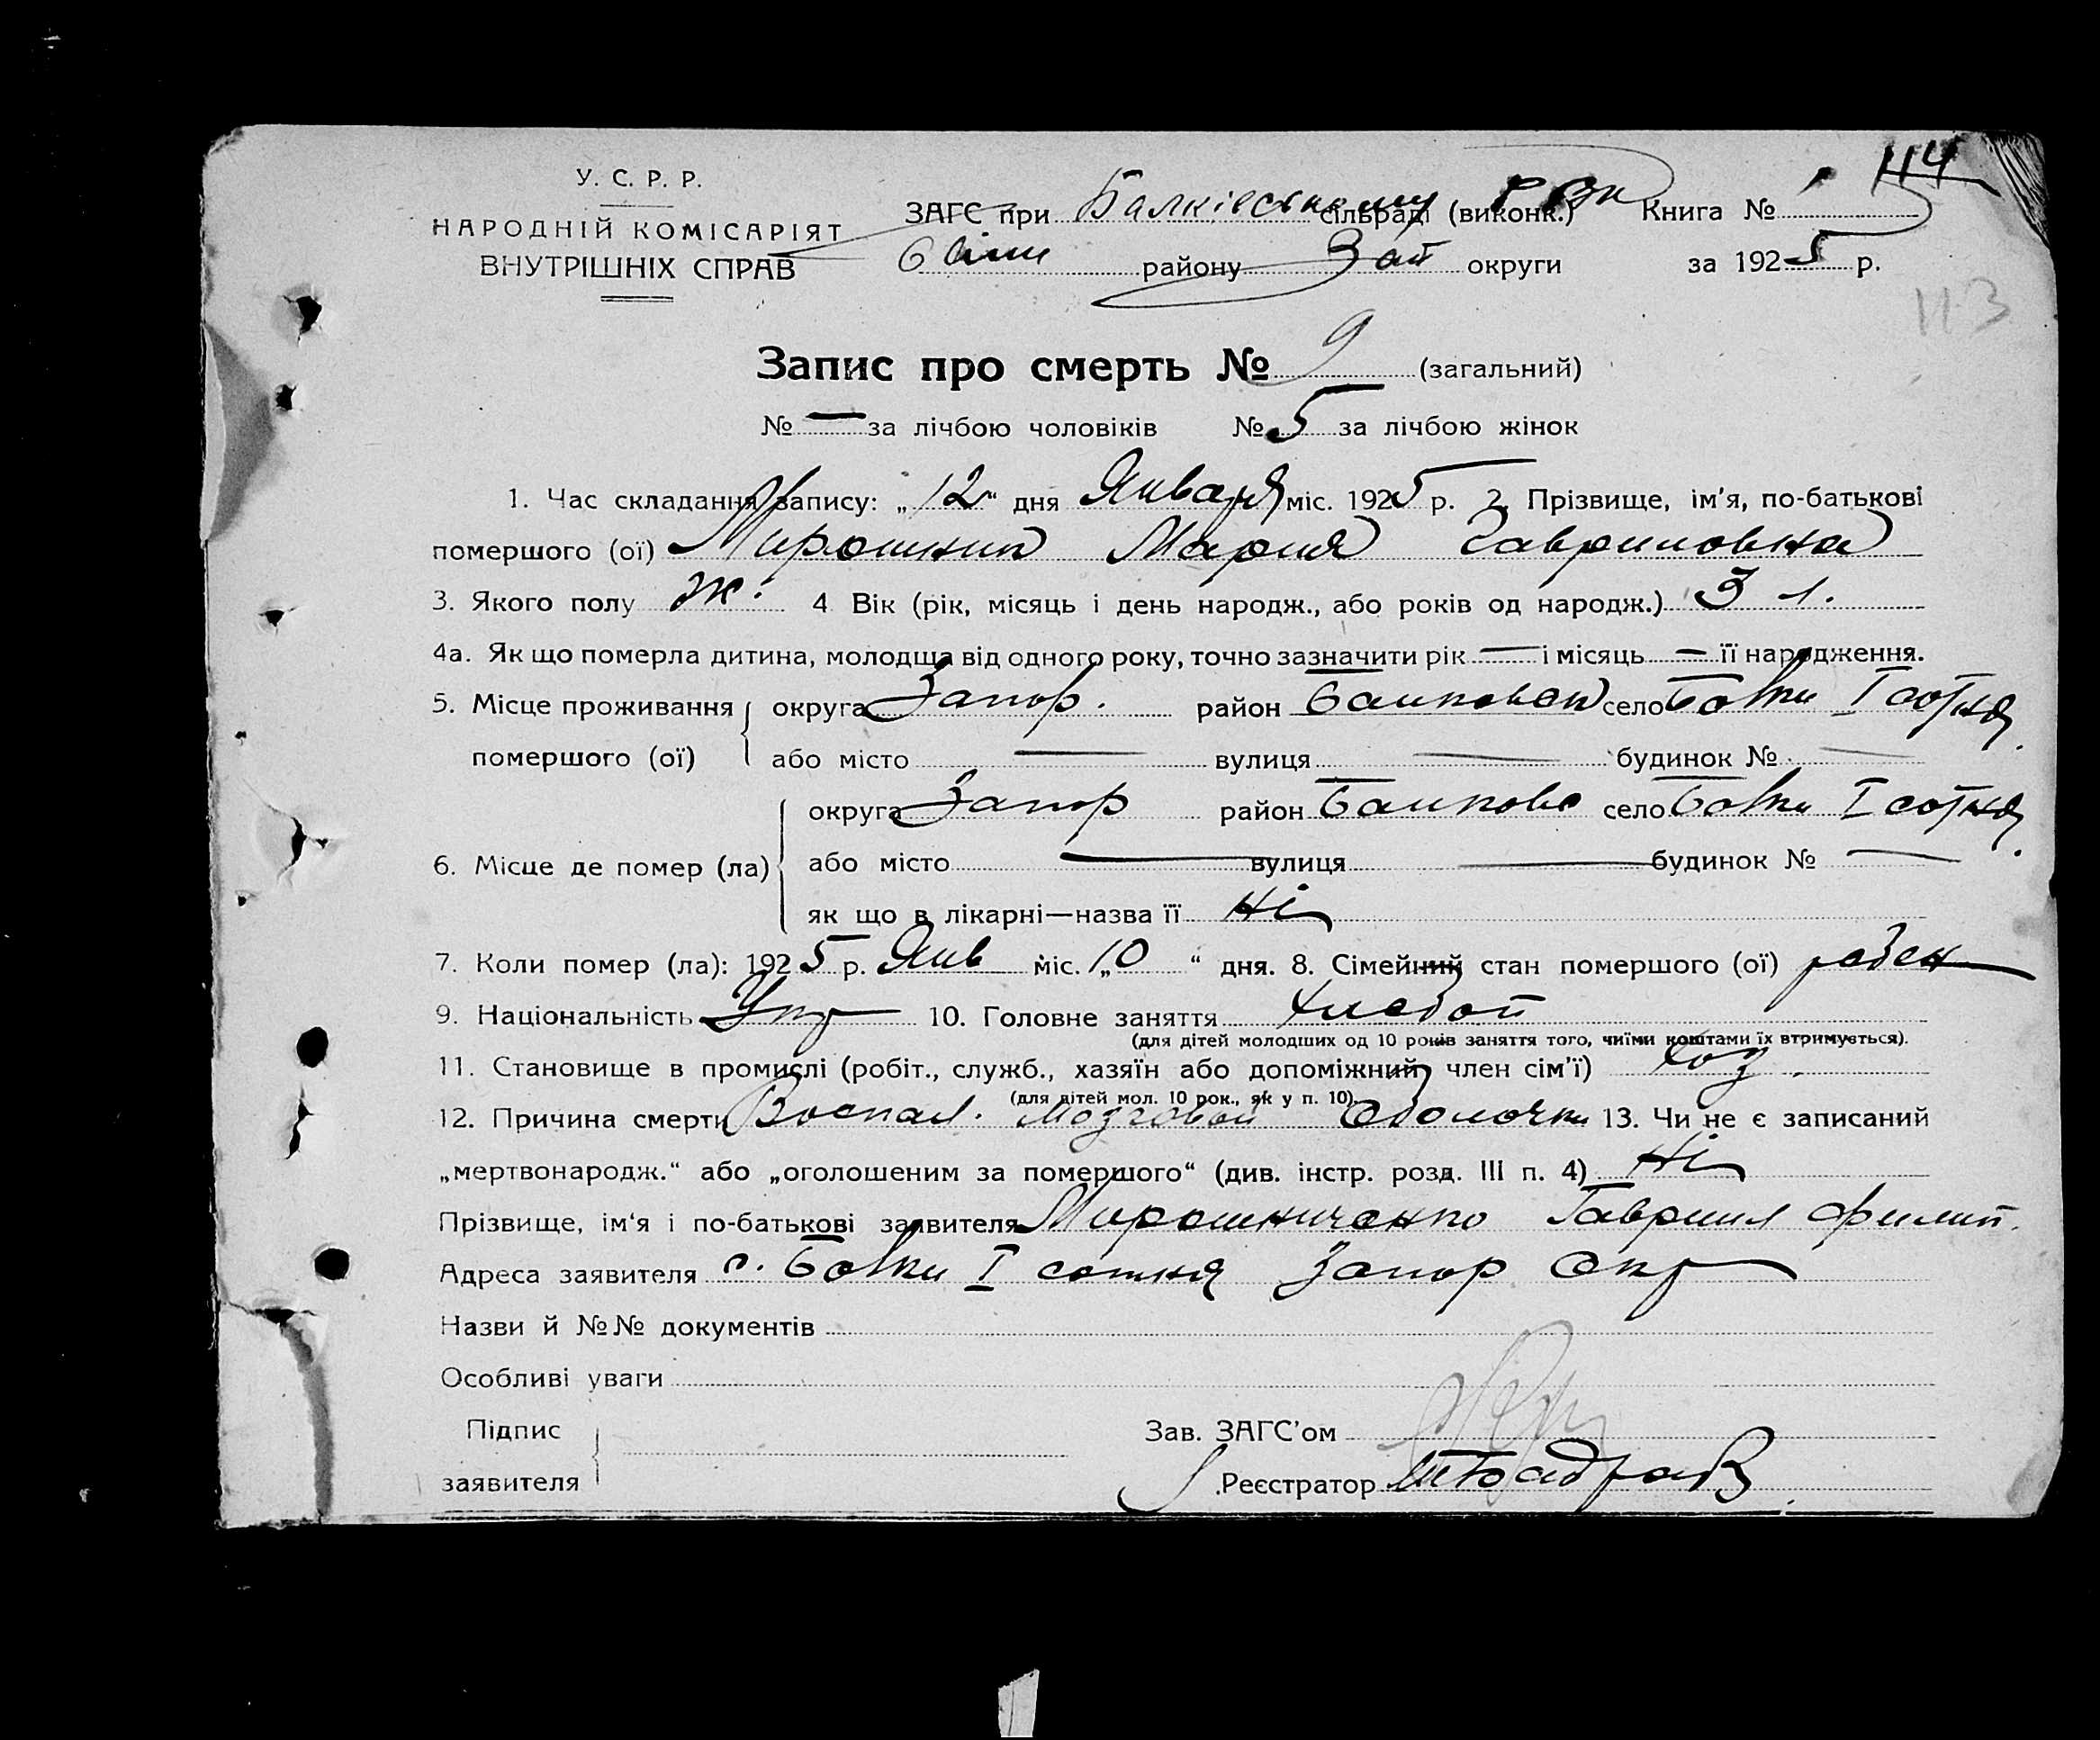 114
У. С. Р. Р.
НАРОДНІЙ КОМІСАРІЯТ
ВНУТРІШНІХ СПРАВ
ЗАГС при Балківському сільраді (виконк.) РВК Книга №
району Зап округи за 1925 р.
113
Запис про смерть № 9 (загальний)
№ — за лічбою чоловіків № 5 за лічбою жінок
1. Час складання запису: „12“ дня Января міс. 1925 р. 2. Прізвище, ім'я, по-батькові
помершого (ої) Мирошнич Мария Гавриловна
3. Якого полу Ж. 4 Вік (рік, місяць і день народж., або років од народж.) 3 л.
4а. Як що померла дитина, молодща від одного року, точно зазначити рік — і місяць — її народження.
5. Місце проживання округа Запор. район село Балки І сотня
помершого (ої) або місто — вулиця — будинок № —
округа Запор район село Балки І сотня
6. Місце де помер (ла) або місто — вулиця — будинок № —
як що в лікарні—назва її Ні
7. Коли помер (ла): 1925 р. Янв міс. „10“ дня. 8. Сімейний стан помершого (ої) ребен
9. Національність Укр 10. Головне заняття Хлебоп
(для дітей молодших од 10 років заняття того, чиїми коштами їх втримується).
11. Становище в промислі (робіт., служб., хазяїн або допоміжний член сім'ї) Хоз.
(для дітей мол. 10 рок., як у п. 10)
12. Причина смерти Воспал. Мозговой Оболочки 13. Чи не є записаний
„мертвонародж.“ або „оголошеним за помершого“ (див. інстр. розд. III п. 4) Ні
Прізвище, ім'я і по-батькові заявителя Мирошниченко Гавриил Филип.
Адреса заявителя с. Балки І сотня Запор Окр
Назви й №№ документів
Особливі уваги
Підпис Зав. ЗАГС'ом
заявителя Реєстратор